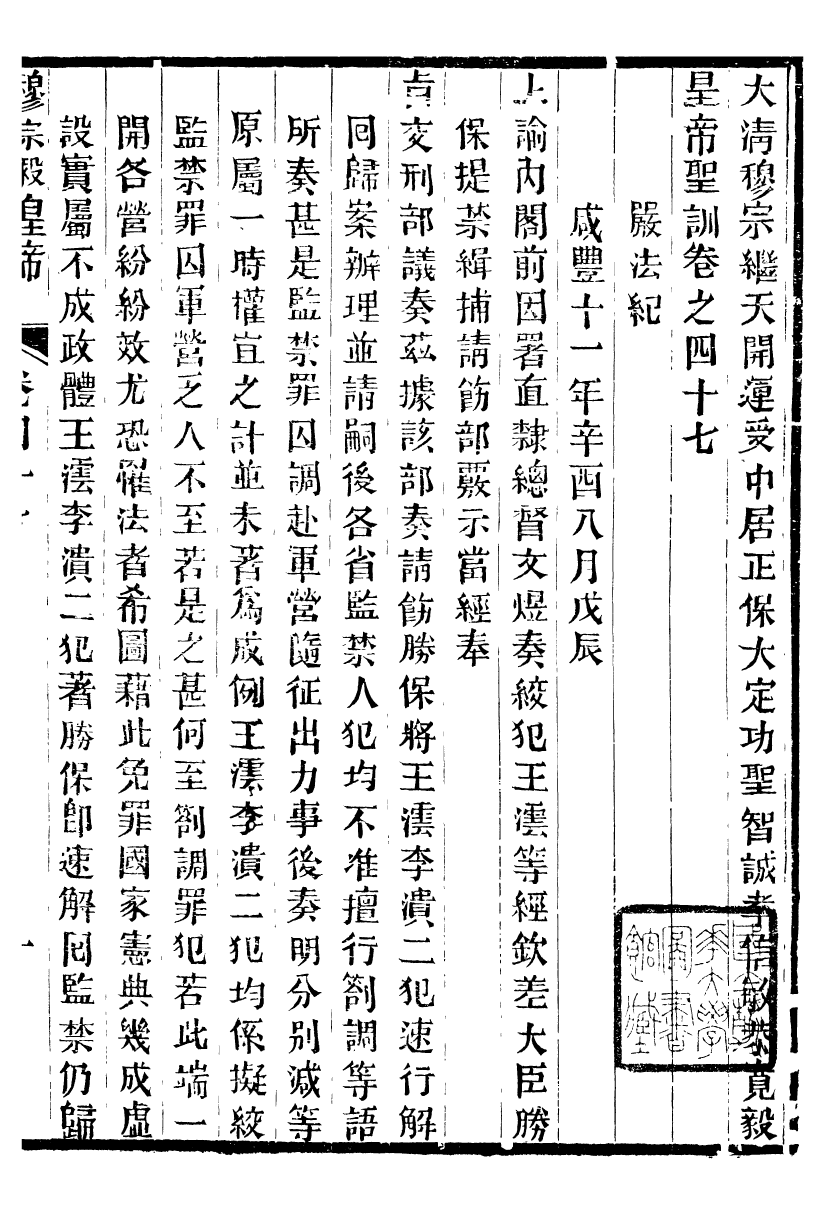 大清穆宗繼天開運受中居正保大定功聖智誠孝信敏恭寬毅
皇帝聖訓卷之四十七
嚴法紀
咸豐十一年辛酉八月戊辰
上諭內閣前因署直隸總督文煜奏絞犯王澐等經欽差大臣勝
保提禁緝捕請飭部覈示當經奉
旨交刑部議奏茲據該部奏請飭勝保將王澐李潰二犯速行解
囘歸案辦理並請嗣後各省監禁人犯均不准擅行劄調等語
所奏甚是監禁罪囚調赴軍營隨征出力事後奏明分別減等
原屬一時權宜之計並未著爲成例王澐李潰二犯均係擬絞
監禁罪囚軍營乏人不至若是之甚何至劄調罪犯若此端一
開各營紛紛效尤恐懼法者希圖藉此免罪國家憲典幾成虛
設實屬不成政體王澐李潰二犯著勝保卽速解囘監禁仍歸
穆宗毅皇帝 卷四十七 一